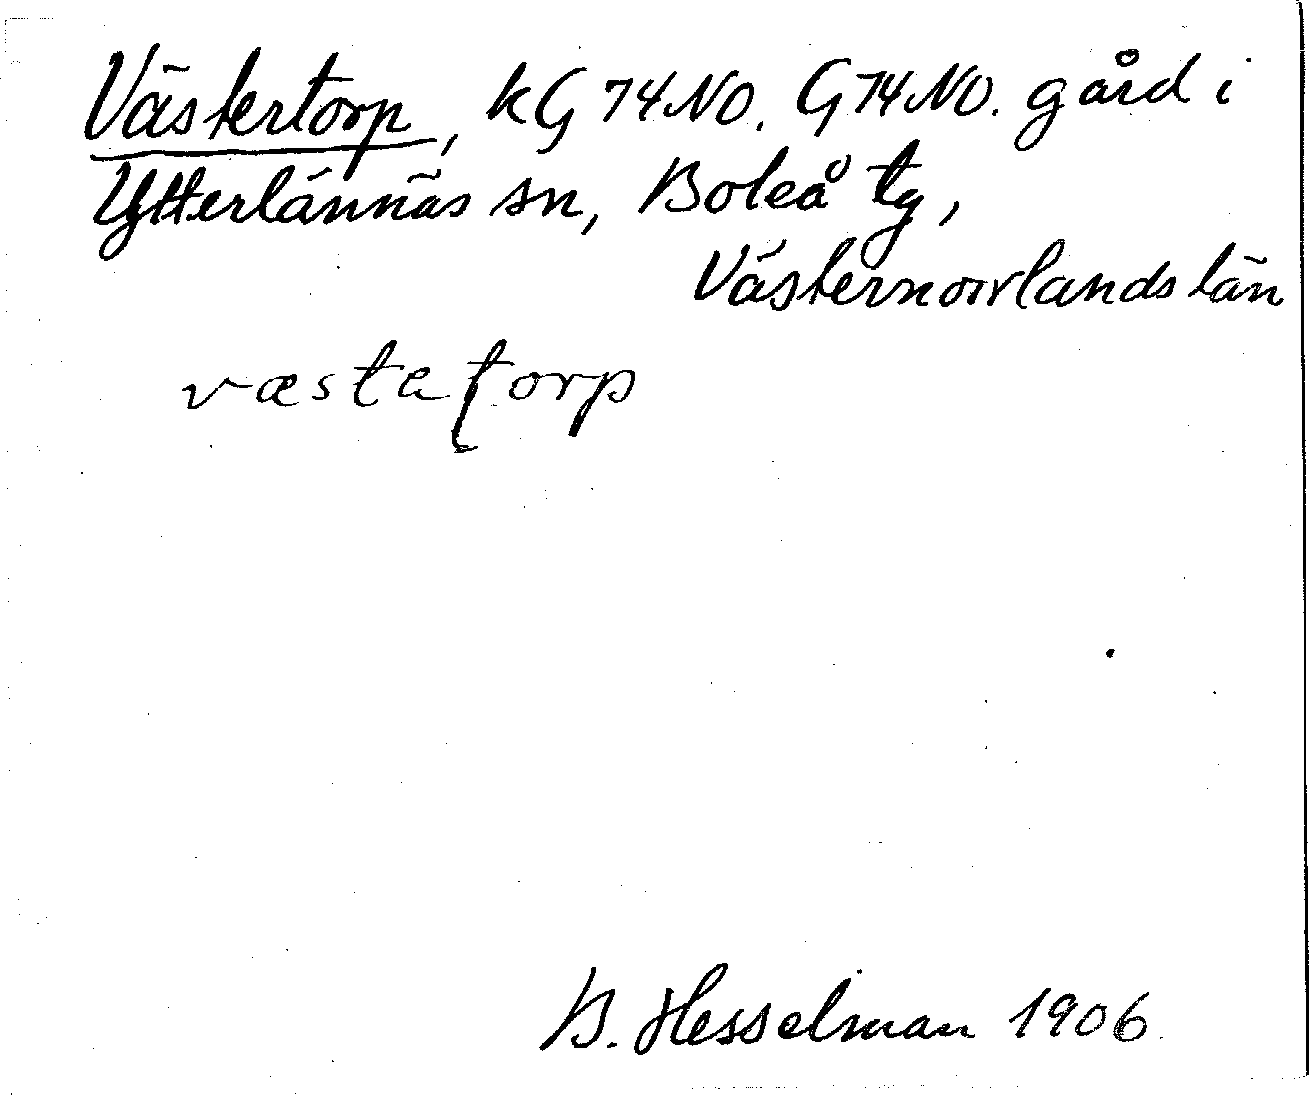 Västertorp, kG 74 NO. G 74 NO. gård i
Ytterlännäs sn, Boleå tg,
Västernorrlands län
væsteʈorp
B. Hesselman 1906.